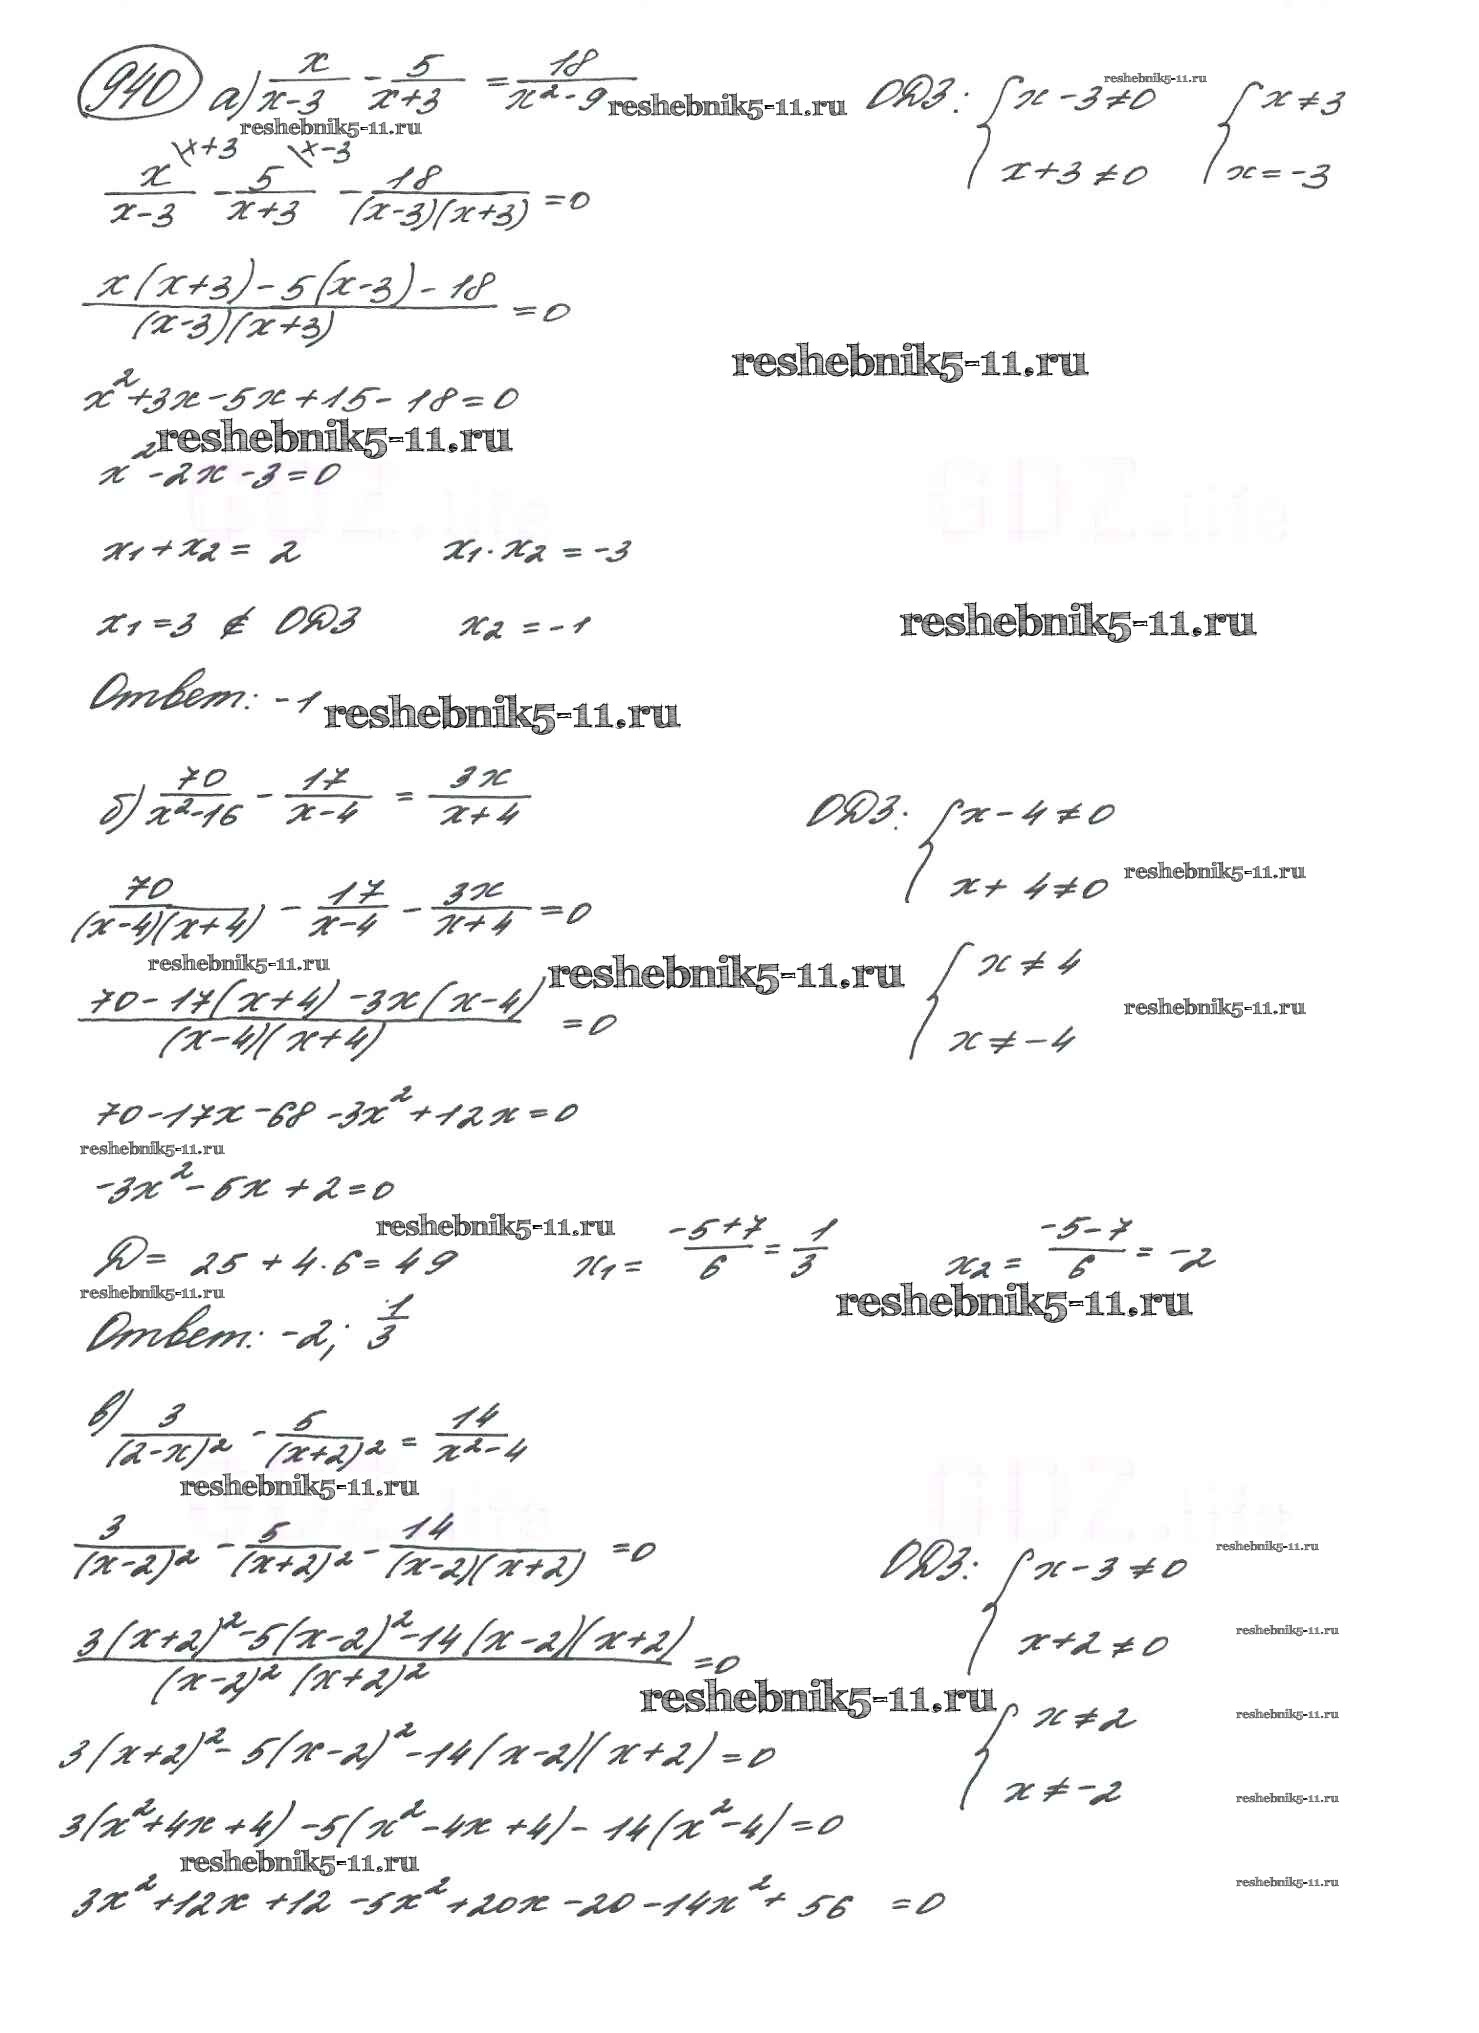 940 а) x/(x-3) - 5/(x+3) = 18/(x²-9) reshebnik5-11.ru ОДЗ: { x-3≠0 { x≠3
reshebnik5-11.ru
reshebnik5-11.ru
x+3 \x-3 x+3≠0 x=-3
x/(x-3) - 5/(x+3) - 18/((x-3)(x+3)) =0
(x(x+3)-5(x-3)-18)/((x-3)(x+3)) =0
reshebnik5-11.ru
x²+3x-5x+15-18=0
reshebnik5-11.ru
x²-2x-3=0
GDZ.life GDZ.life
x₁+x₂= 2 x₁·x₂=-3
x₁=3 ∉ ОДЗ x₂=-1
reshebnik5-11.ru
Ответ: -1 reshebnik5-11.ru
б) 70/(x²-16) - 17/(x-4) = 3x/(x+4) ОДЗ: { x-4≠0
x+4≠0 reshebnik5-11.ru
70/((x-4)(x+4)) - 17/(x-4) - 3x/(x+4) =0
reshebnik5-11.ru reshebnik5-11.ru { x≠4
(70-17(x+4)-3x(x-4))/((x-4)(x+4)) =0 reshebnik5-11.ru
x≠-4
70-17x-68-3x²+12x=0
reshebnik5-11.ru
-3x²-5x+2=0
reshebnik5-11.ru
D= 25+4·6=49 x₁= (-5+7)/6 = 1/3 x₂= (-5-7)/6 = -2
reshebnik5-11.ru reshebnik5-11.ru
Ответ: -2; 1/3
в) 3/(2-x)² - 5/(x+2)² = 14/(x²-4)
reshebnik5-11.ru
3/(x-2)² - 5/(x+2)² - 14/((x-2)(x+2)) =0 ОДЗ: { x-3≠0 reshebnik5-11.ru
x+2≠0 reshebnik5-11.ru
(3(x+2)²-5(x-2)²-14(x-2)(x+2))/((x-2)²(x+2)²) =0
reshebnik5-11.ru { x≠2 reshebnik5-11.ru
3(x+2)²-5(x-2)²-14(x-2)(x+2)=0
x≠-2 reshebnik5-11.ru
3(x²+4x+4)-5(x²-4x+4)-14(x²-4)=0
reshebnik5-11.ru reshebnik5-11.ru
3x²+12x+12-5x²+20x-20-14x²+56 =0